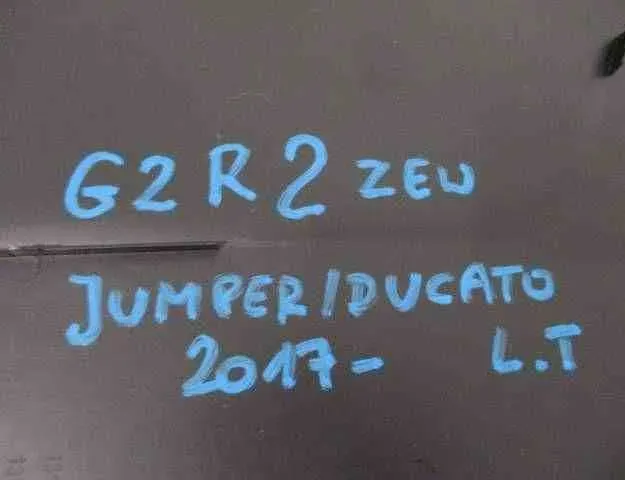 G2R2 ZEW
JUMPER/DUCATO
2017- L.T